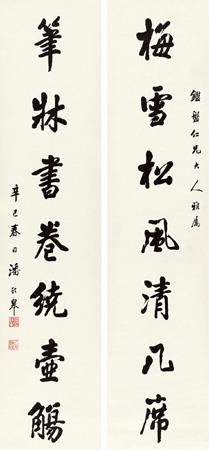 鑑盤仁兄大人雅屬
梅雪松風清几席
筆牀書卷繞壺觴
辛巳春日潘齡皋